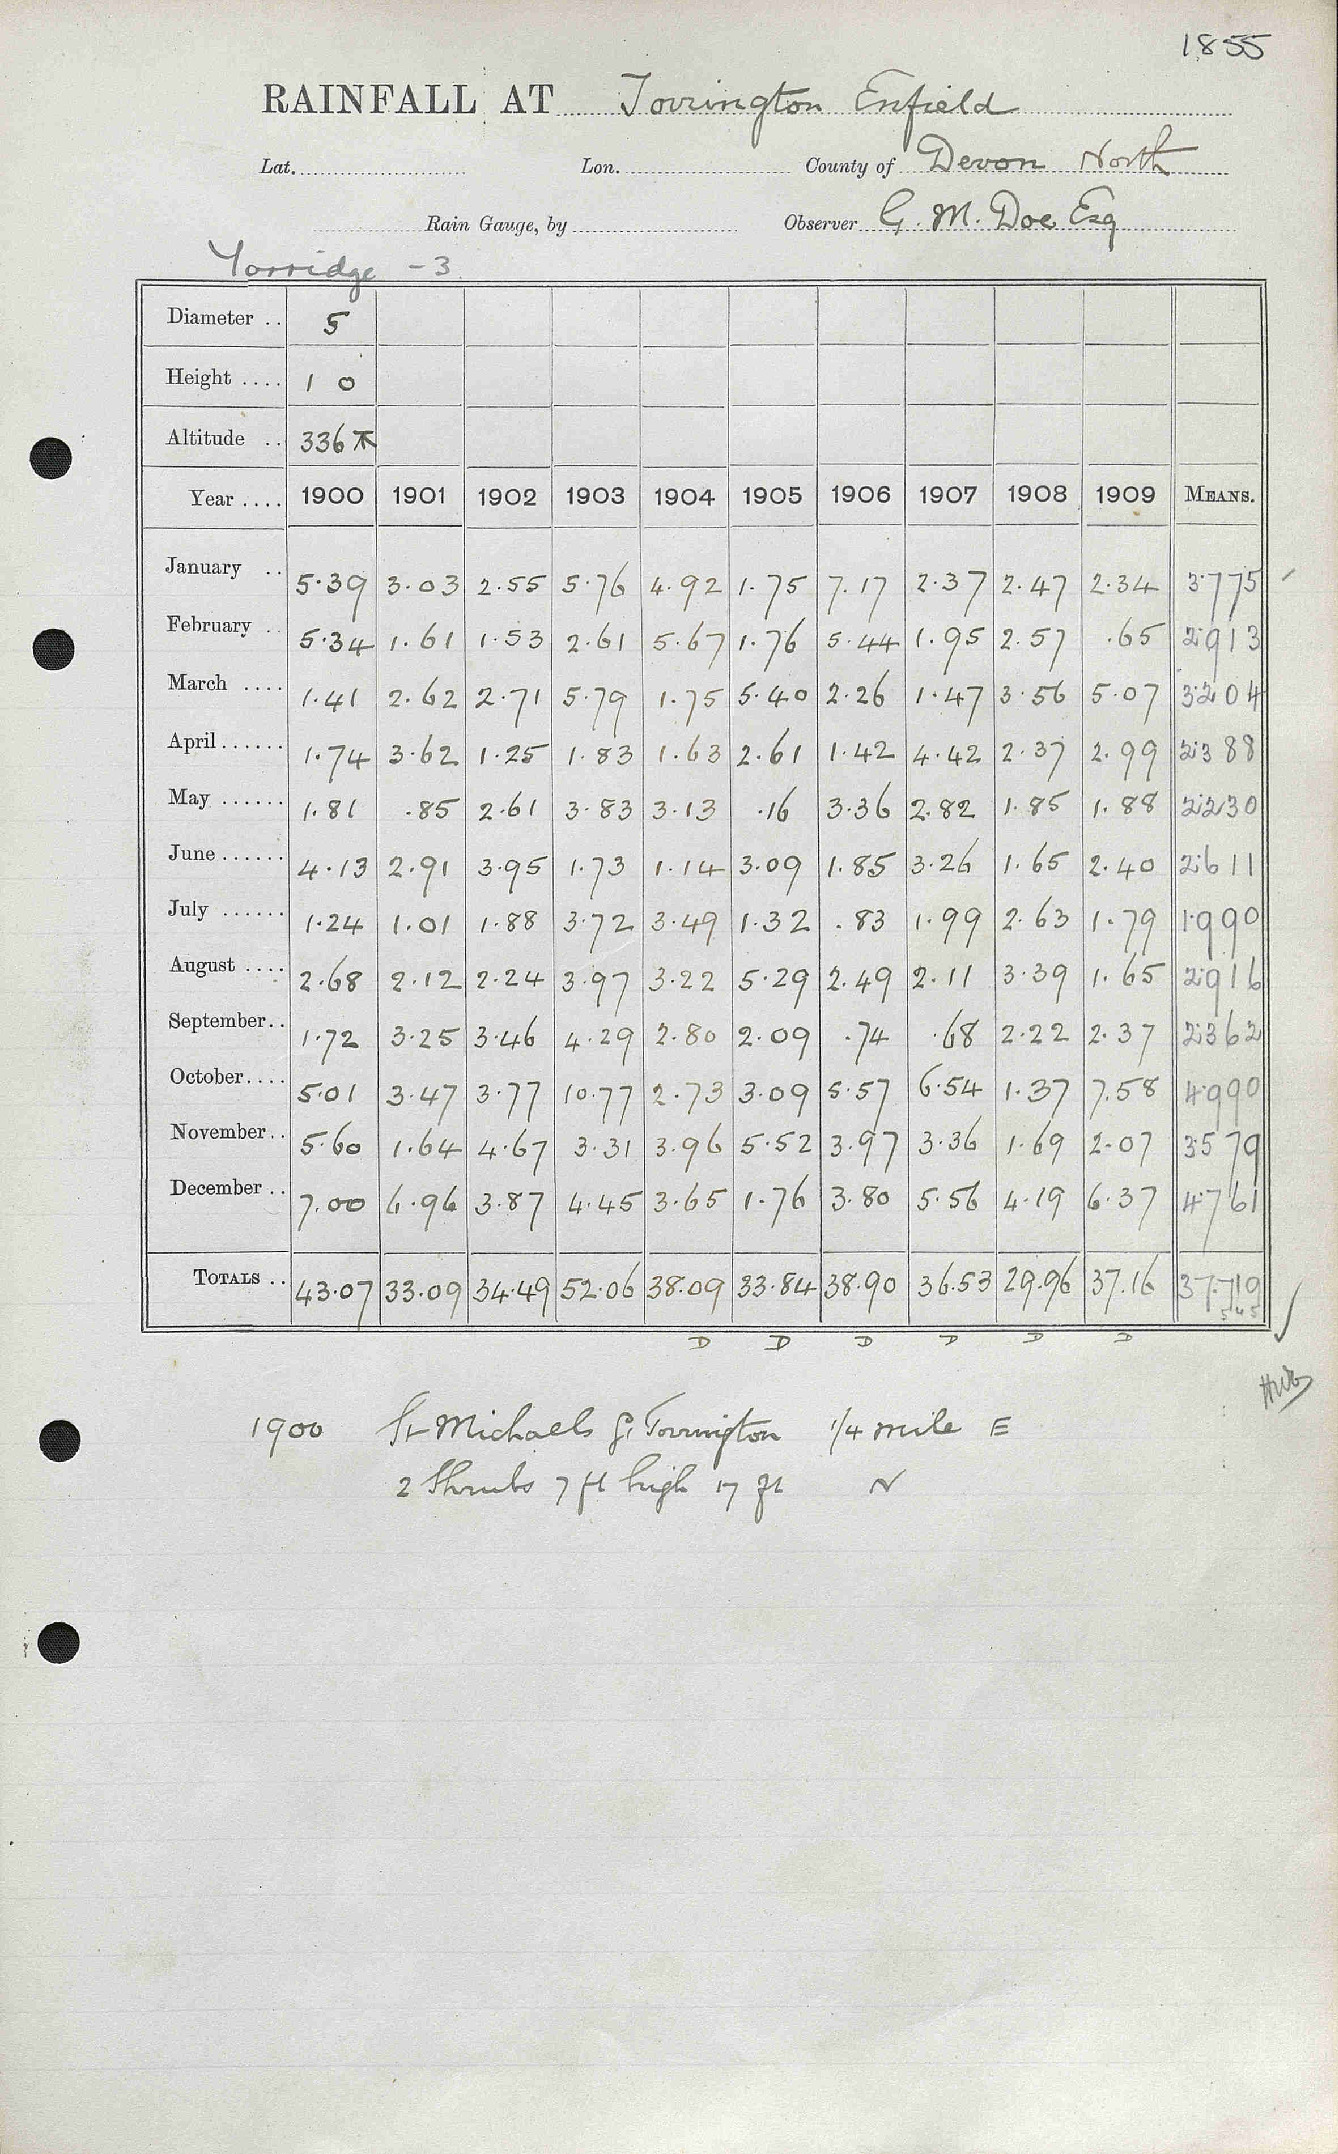 1855
RAINFALL AT Torrington Enfield
Lat. Lon. County of Devon North
Rain Gauge, by Observer G. M. Doe Esq
Torridge - 3
Diameter .. 5
Height .... 1 0
Altitude .. 336
Year .... 1900 1901 1902 1903 1904 1905 1906 1907 1908 1909 MEANS.
January .. 5.39 3.03 2.55 5.76 4.92 1.75 7.17 2.37 2.47 2.34 3.775
February .. 5.34 1.61 1.53 2.61 5.67 1.76 5.44 1.95 2.57 .65 2.913
March .... 1.41 2.62 2.71 5.79 1.75 5.40 2.26 1.47 3.56 5.07 3.204
April...... 1.74 3.62 1.25 1.83 1.63 2.61 1.42 4.42 2.37 2.99 2.388
May ...... 1.81 .85 2.61 3.83 3.13 .16 3.36 2.82 1.85 1.88 2.230
June...... 4.13 2.91 3.95 1.73 1.14 3.09 1.85 3.26 1.65 2.40 2.611
July ...... 1.24 1.01 1.88 3.72 3.49 1.32 .83 1.99 2.63 1.79 1.990
August .... 2.68 2.12 2.24 3.97 3.22 5.29 2.49 2.11 3.39 1.65 2.916
September.. 1.72 3.25 3.46 4.29 2.80 2.09 .74 .68 2.22 2.37 2.362
October.... 5.01 3.47 3.77 10.77 2.73 3.09 5.57 6.54 1.37 7.58 4.990
November.. 5.60 1.64 4.67 3.31 3.96 5.52 3.97 3.36 1.69 2.07 3.579
December .. 7.00 6.96 3.87 4.45 3.65 1.76 3.80 5.56 4.19 6.37 4.761
TOTALS .. 43.07 33.09 34.49 52.06 38.09 33.84 38.90 36.53 29.96 37.16 37.719
D D D D D D
1900 St Michaels Gt Torrington 1/4 mile E
2 Shrubs 7 ft high 17 ft N